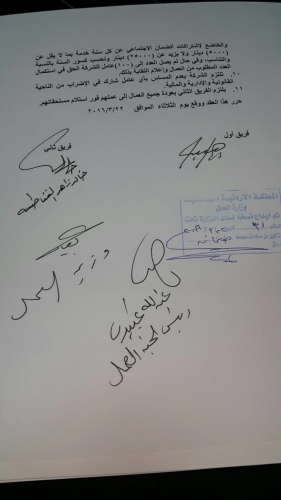 والخاضع لاشتراكات الضمان الاجتماعي عن كل سنة خدمة بما لا يقل عن
(٥٠٠٠) دينار ولا يزيد عن (٢٥٠٠٠) دينار وتحسب كسور السنة بالنسبة
والتناسب، وفي حال لم يصل العدد إلى (١٠٠) عامل للشركة الحق في استكمال
العدد المطلوب من العمال وإعلام النقابة بذلك.
١٠. تلتزم الشركة بعدم المساس بأي عامل شارك في الإضراب من الناحية
القانونية والإدارية والمالية.
١١. يلتزم الفريق الثاني بعودة جميع العمال إلى عملهم فور استلام مستحقاتهم.
حرر هذا العقد ووقع يوم الثلاثاء الموافق ٢٠١٦/٣/٢٢
فريق أول
فريق ثاني
خالد زاهر الفناطسة
المملكة الأردنية الهاشمية
وزارة العمل
وزير العمل
عبدالله
رئيس لجنة العمال